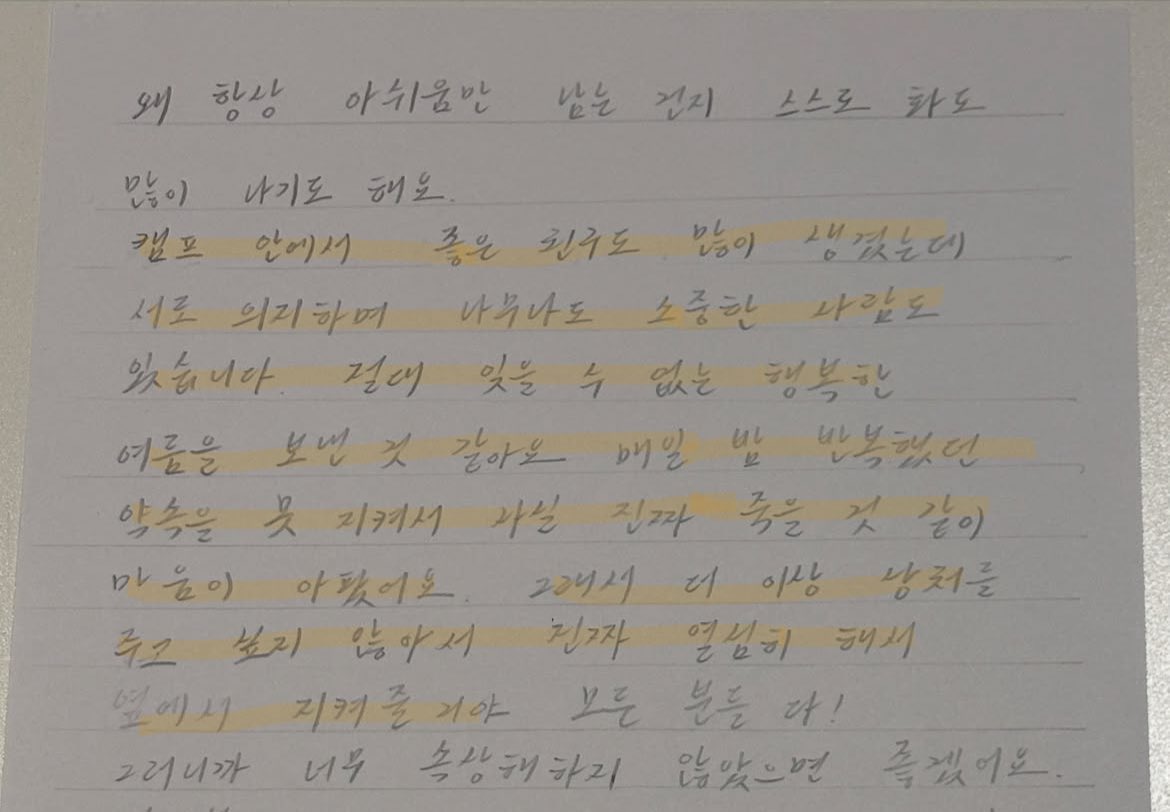 왜 항상 아쉬움만 남는 건지 스스로 화도
많이 나기도 해요.
캠프 안에서 좋은 친구도 많이 생겼는데
서로 의지하며 나무나도 소중한 사람도
있습니다. 절대 잊을 수 없는 행복한
여름을 보낸 것 같아요 매일 밤 반복했던
약속을 못 지켜서 사실 진짜 죽을 것 같이
마음이 아팠어요. 그래서 더 이상 상처를
주고 싶지 않아서 진짜 열심히 해서
옆에서 지켜줄 거야 모든 분들 다!
그러니까 너무 속상해하지 않았으면 좋겠어요.